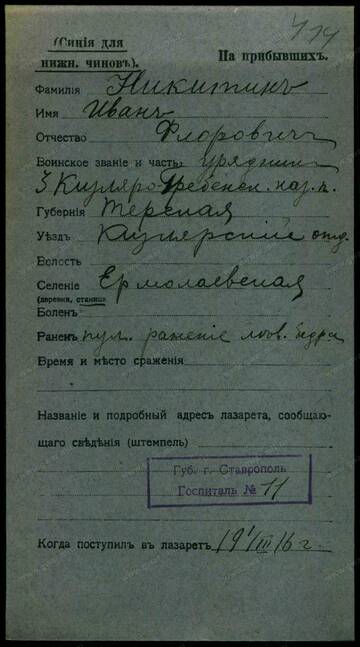 414
(Синія для
нижн. чиновъ).
На прибывшихъ.
Фамилія Никитинъ
Имя Иванъ
Отчество Флоровичъ
Воинское званіе и часть урядник
3 Кизляро-Гребенск. каз. п.
Губернія Терская
Уѣздъ Кизлярскій отд.
Волость
Селеніе Ермолаевская
(деревня, станица)
Боленъ
Раненъ пул. раненіе лѣв. бедра
Время и мѣсто сраженія
Названіе и подробный адресъ лазарета, сообщаю-
щаго свѣдѣнія (штемпель)
Губ. г. Ставрополь
Госпиталь № 11
Когда поступилъ въ лазаретъ 19 1/III 16 г.